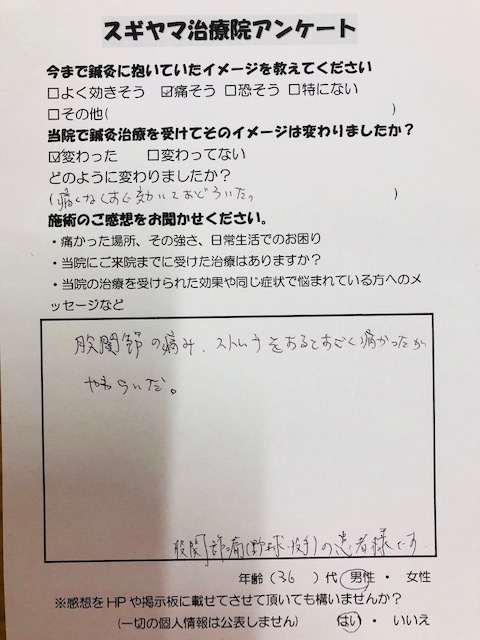 スギヤマ治療院アンケート
今まで鍼灸に抱いていたイメージを教えてください
□よく効きそう ☑痛そう □恐そう □特にない
□その他( )
当院で鍼灸治療を受けてそのイメージは変わりましたか?
☑変わった □変わってない
どのように変わりましたか?
(痛くなくすぐ効いておどろいた。 )
施術のご感想をお聞かせください。
・痛かった場所、その強さ、日常生活でのお困り
・当院にご来院までに受けた治療はありますか?
・当院の治療を受けられた効果や同じ症状で悩まれている方へのメ
ッセージなど
股関節の痛み、 痛かったが
やわらいだ。
股関節痛(野球・投手)の患者様です。
年齢(36)代 男性・女性
※感想をHPや掲示板に載せてさせて頂いても構いませんか?
(一切の個人情報は公表しません) はい・いいえ